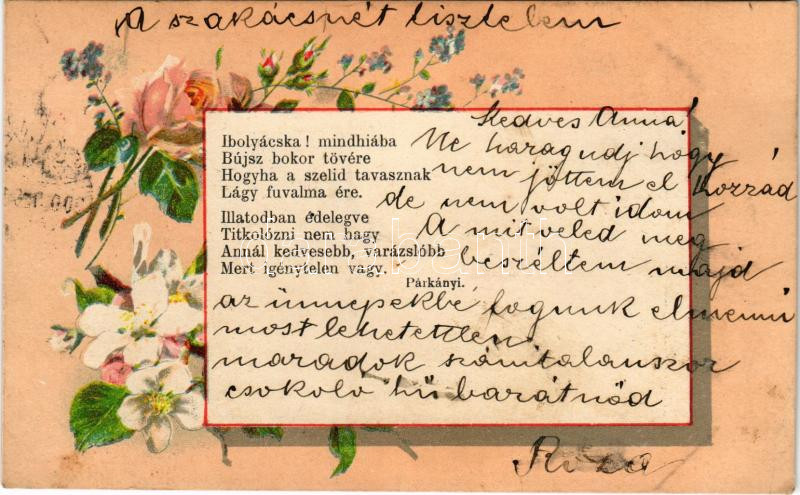 A szakácsnét tisztelem
Ibolyácska! mindhiába
Bújsz bokor tövére
Hogyha a szelid tavasznak
Lágy fuvalma ére.
Illatodban édelegve
Titkolózni nem hagy
Annál kedvesebb, varázslóbb
Mert igénytelen vagy.
Párkányi.
Kedves Anna!
Ne haragudj hogy
nem jöttem el hozzád
de nem volt idöm
A mit veled meg
beszéltem majd
az ünnepekbe fogunk elmenni
most lehetetlen
maradok számitalanszor
csokoló hű barátnőd
Róza